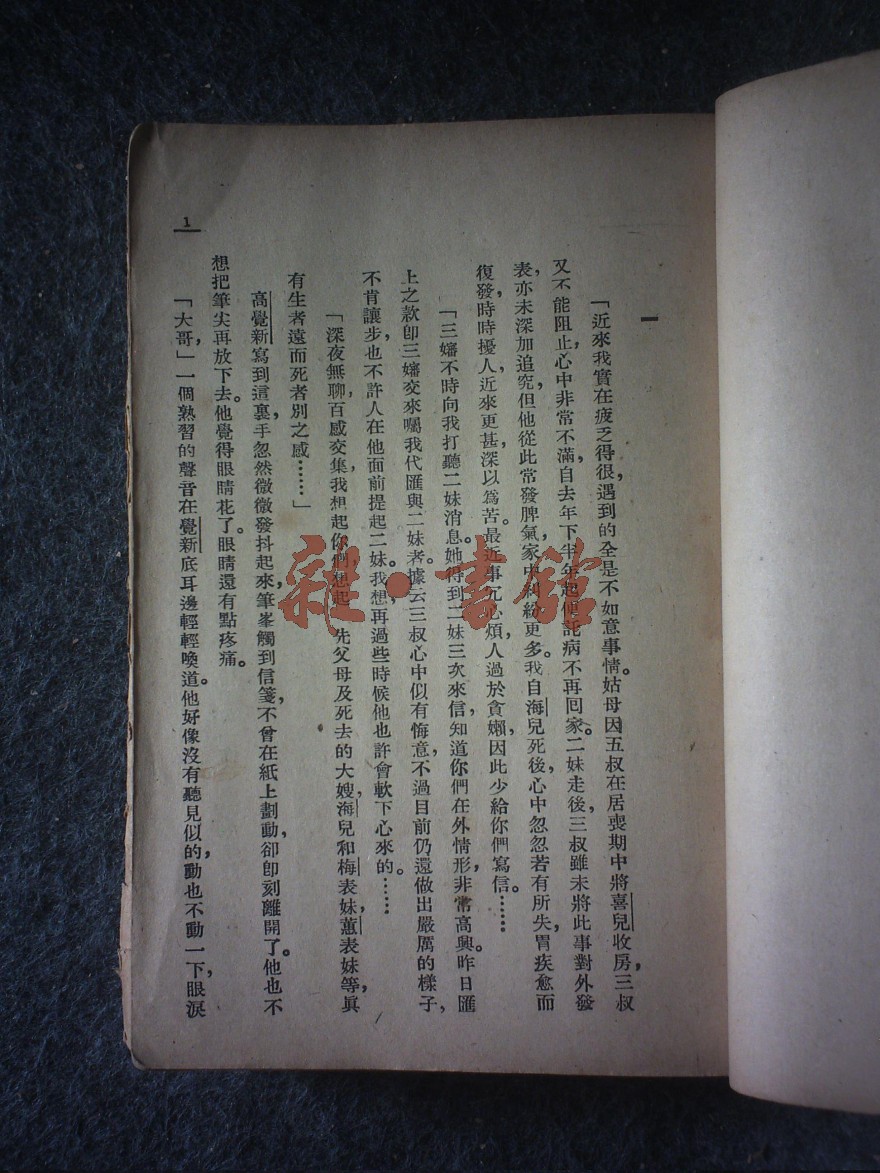 一
「近來我實在疲乏得很，遇到的全是不如意事情。姑母因五叔在居喪期中將喜兒收房，三叔
又不能阻止，心中非常不滿，自去年下半年起便託病不再回家。二妹走後，三叔雖未將此事對外發
表，亦未深加追究，但他從此常發脾氣，家中糾紛更多。我自海兒死後，心中忽忽若有所失，胃疾愈而
復發，時時擾人，近來更甚，深以爲苦。最近事冗心煩，人過於貪懶，因此少給你們寫信。……
「三嬸不時向我打聽二妹消息。她得到二妹三次來信，知道你們在外情形，非常高興。昨日匯
上之款卽三嬸交來囑我代匯與二妹者。據云三叔心中似有悔意，不過目前仍還做出嚴厲的樣子，
不肯讓步，也不許人在他面前提起二妹。我想再過些時候他也許會軟下心來的。……
「深夜無聊，百感交集，我想起你們，想起 先父母及死去的大嫂，海兒和梅表妹，蕙表妹等，眞
有生者遠而死者別之感……」
高覺新寫到這裏，手忽然微微發抖起來，筆峯觸到信箋，不曾在紙上劃動，卻卽刻離開了。他也不
想把筆尖再放下去。他覺得眼睛花了。眼睛還有點疼痛。
「大哥，」一個熟習的聲音在覺新底耳邊輕輕喚道。他好像沒有聽見似的，動也不動一下，眼淚
1
雜·書館